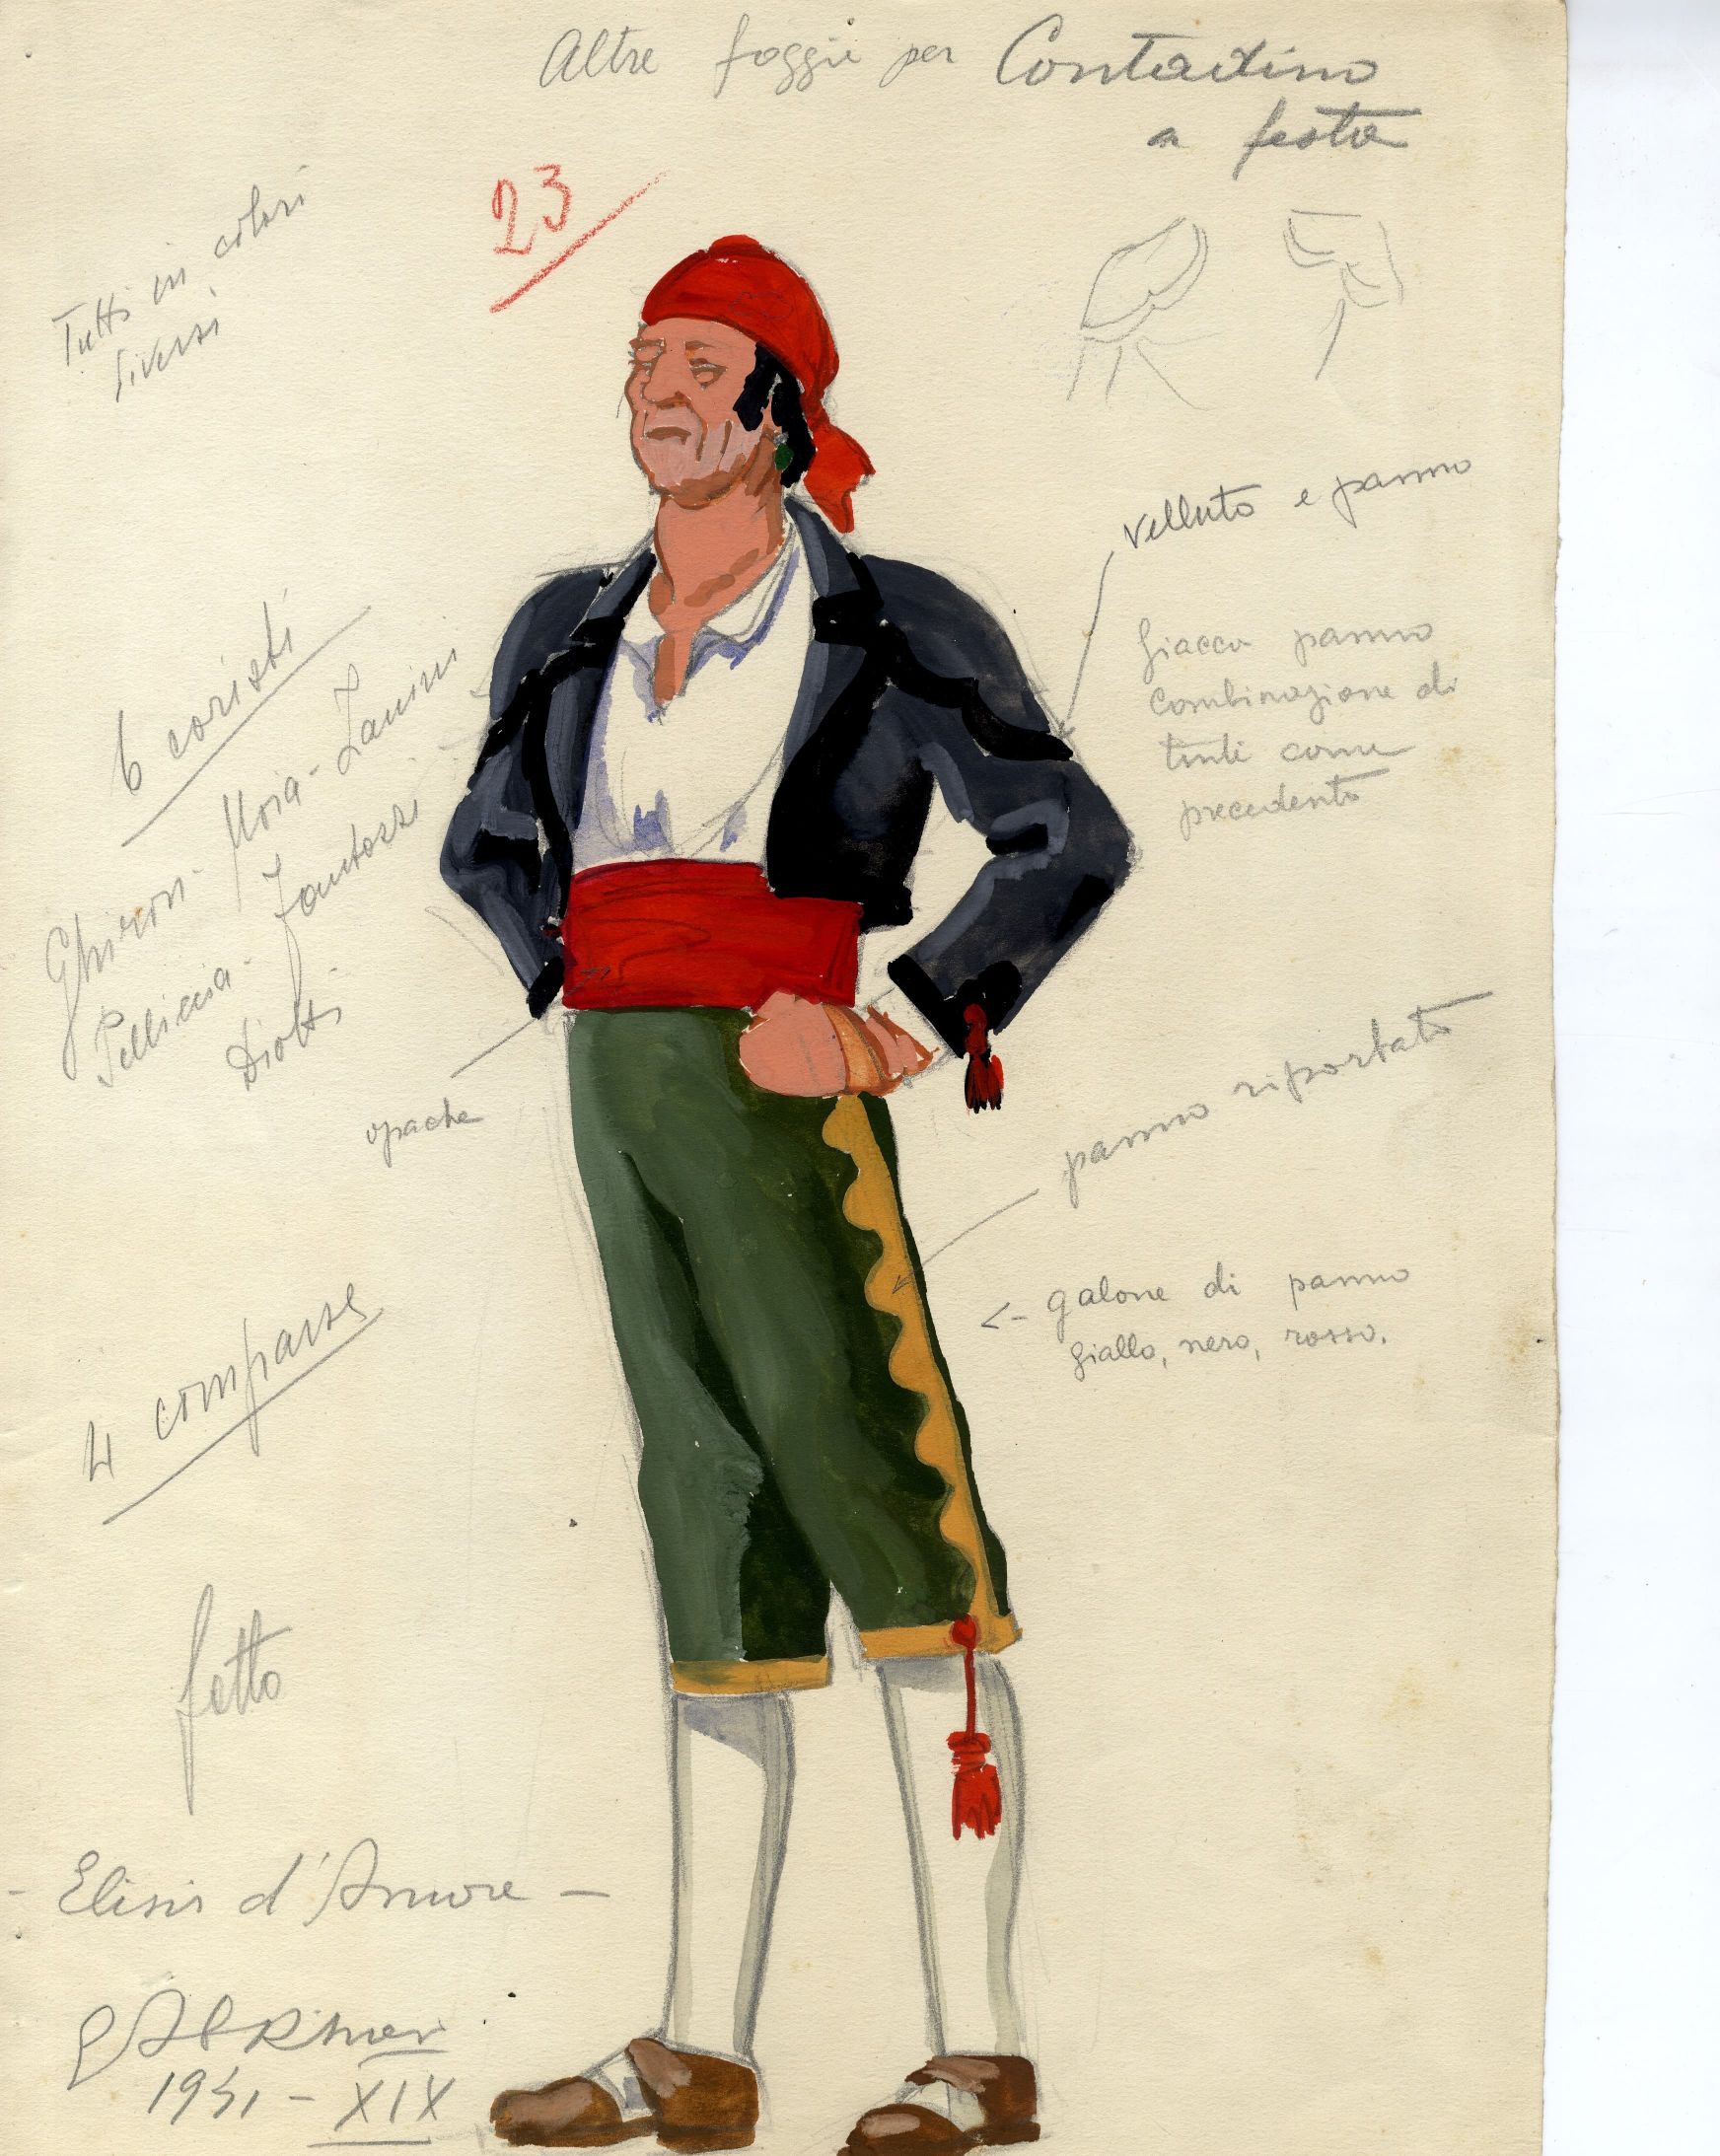 Altre foggie per Contadino
a festa
23
Tutti in colori
diversi
velluto e panno
Giacca panno
combinazione di
tinte come
precedente
6 coristi
Ghironi - Moia - Zanini
Pelliccia - Fantozzi
Diotti
opache
panno riportato
<- galone di panno
giallo, nero, rosso.
4 comparse
fatto
- Elisir d'Amore -
1941 - XIX